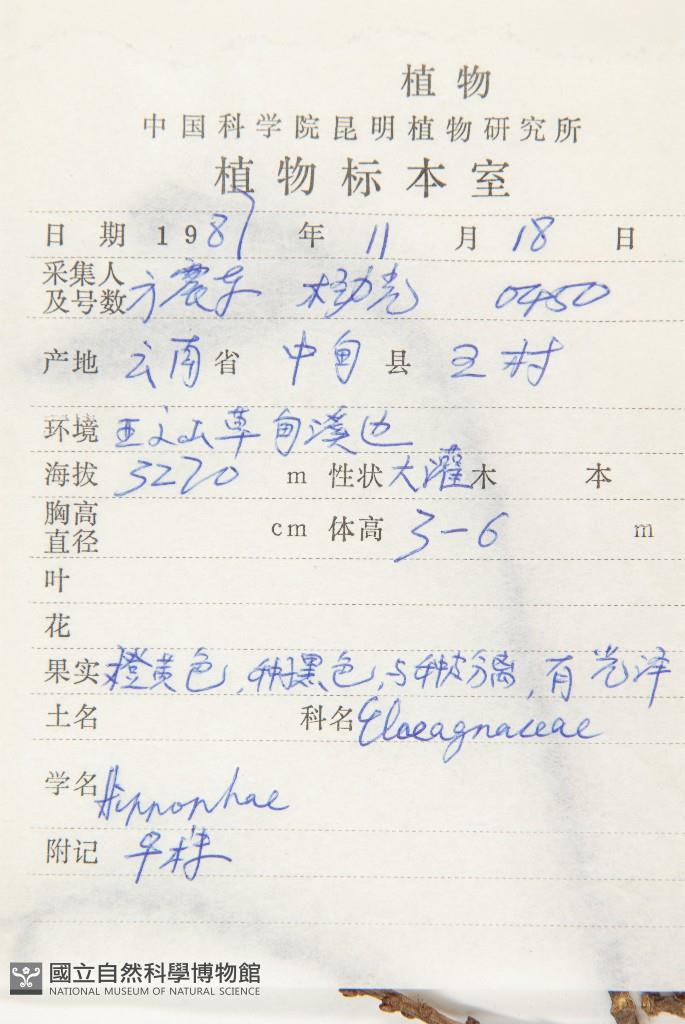 植物
中国科学院昆明植物研究所
植物标本室
日 期 1987 年 11 月 18 日
采集人
及号数 方震东 0450
产地 云南省 中甸县 王村
环境 草甸溪边
海拔 3270 m 性状 大灌木 本
胸高
直径 cm 体高 3-6 m
叶
花
果实 橙黄色,种黑色,与种皮分离,有光泽
土名 科名 Elaeagnaceae
学名 Hippophae
附记
國立自然科學博物館
NATIONAL MUSEUM OF NATURAL SCIENCE